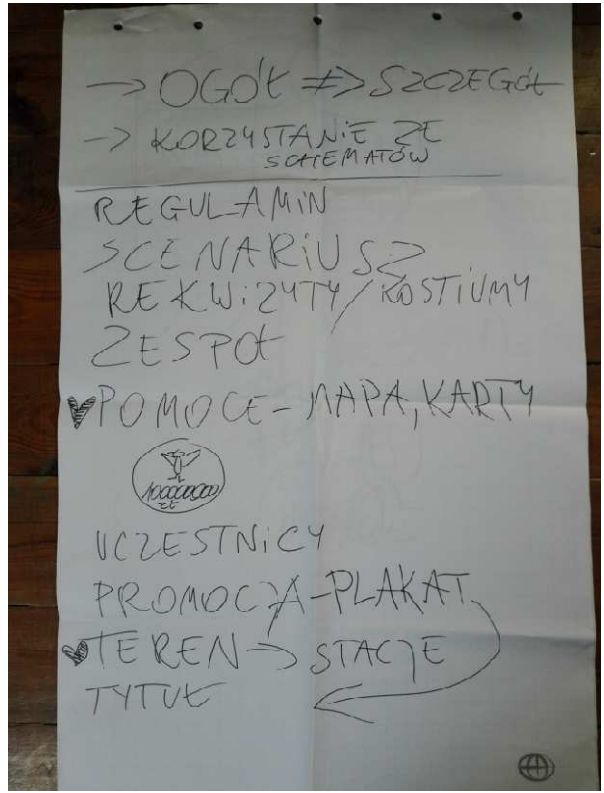 → OGÓŁ ≠> SZCZEGÓŁ
→ KORZYSTANIE ZE
SCHEMATÓW
REGULAMIN
SCENARIUSZ
REKWIZYTY/KOSTIUMY
ZESPÓŁ
POMOCE - MAPA, KARTY
100000000
ZŁ
UCZESTNICY
PROMOCJA - PLAKAT
TEREN → STACJE
TYTUŁ